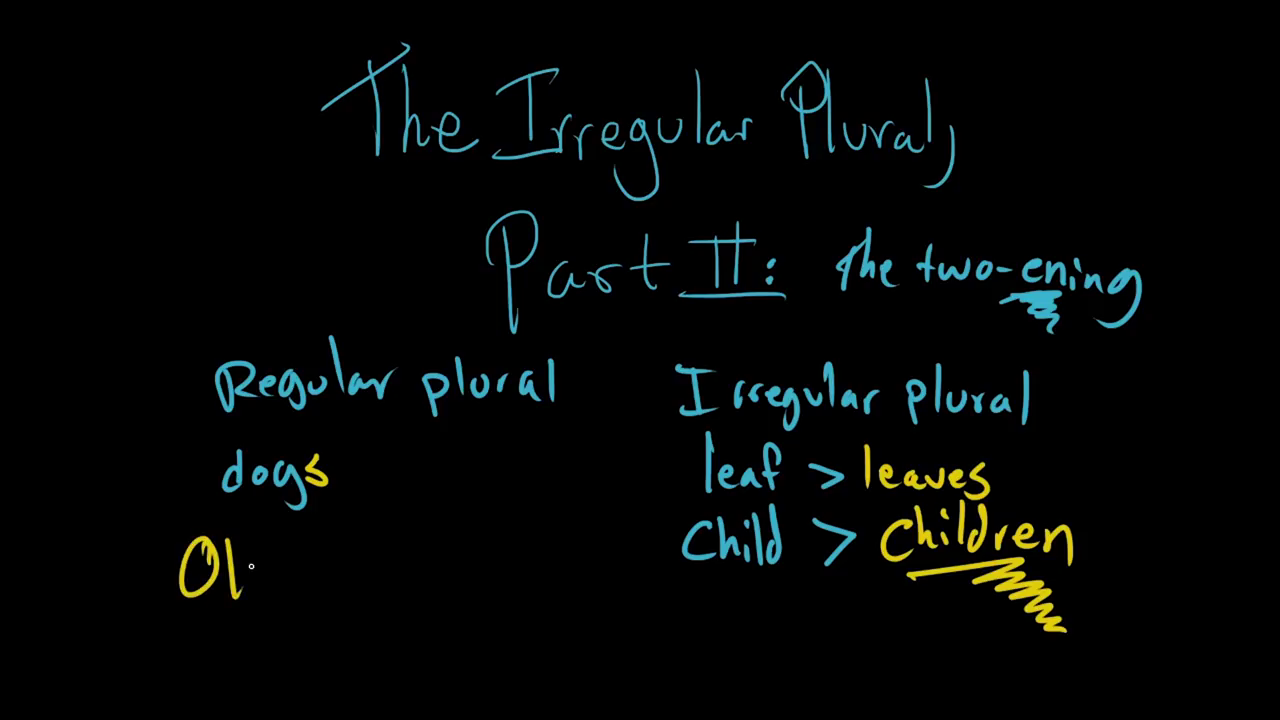 The Irregular Plural,
Part II: the two-ening
Regular plural
Irregular plural
dogs
leaf > leaves
Child > Children
Ol